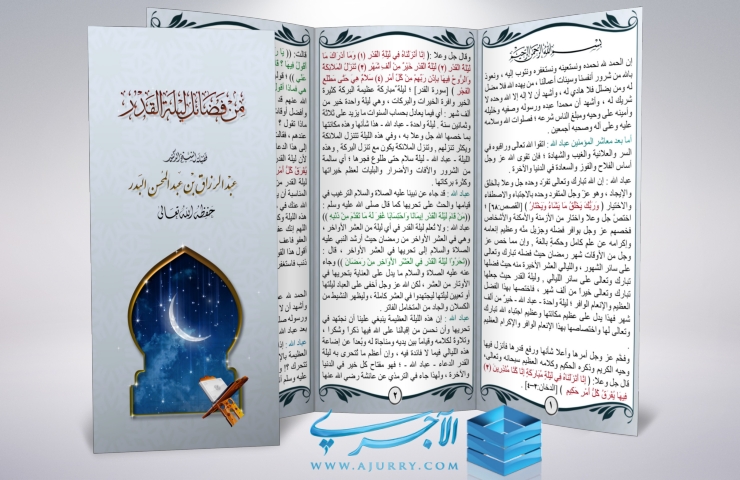 من فضائل ليلة القدر
فضيلة الشيخ الدكتور
عبد الرزاق بن عبد المحسن البدر
حفظه الله تعالى
بسم الله الرحمن الرحيم
إن الحمد لله نحمده ونستعينه ونستغفره ونتوب إليه ، ونعوذ
بالله من شرور أنفسنا وسيئات أعمالنا ، من يهده الله فلا مضل
له ومن يضلل فلا هادي له ، وأشهد أن لا إله إلا الله وحده لا
شريك له ، وأشهد أن محمدا عبده ورسوله وصفيه وخليله
وأمينه على وحيه ومبلغ الناس شرعه ؛ فصلوات الله وسلامه
عليه وعلى آله وصحبه أجمعين .
أما بعد معاشر المؤمنين عباد الله : اتقوا الله تعالى وراقبوه في
السر والعلانية والغيب والشهادة ؛ فإن تقوى الله عز وجل
أساس الفلاح والفوز والسعادة في الدنيا والآخرة .
عباد الله : إن الله تبارك وتعالى تفرّد وحده جل وعلا بالخلق
والإيجاد ، وهو عز وجل المتفرد وحده بالاجتباء والاصطفاء
والاختيار { وَرَبُّكَ يَخْلُقُ مَا يَشَاءُ وَيَخْتَارُ } [القصص:٦٨] ،
اختصّ جل وعلا واختار من الأزمنة والأمكنة والأشخاص
فخصهم عز وجل بوافر فضله وجزيل منّه وعظيم إنعامه
وإكرامه عن علم كامل وحكمة بالغة ، وإن مما خص عز
وجل من الأوقات شهر رمضان حيث فضله تبارك وتعالى
على سائر الشهور ، والليالي العشر الأخيرة منه حيث فضلها
تبارك وتعالى على سائر الليالي ، وليلة القدر حيث جعلها
تبارك وتعالى خيراً من ألف شهر ، فاختصها بهذا الفضل
العظيم والإنعام الوافر ؛ ليلة واحدة - عباد الله - خيرٌ من ألف
شهر فهذا يدل على عظيم مكانتها وعظيم اجتباء الله تبارك
وتعالى لها واختصاصها بهذا الإنعام الوافر والإكرام العظيم
.
وفخّم عز وجل أمرها وأعلا شأنها ورفع قدرها فأنزل فيها
وحيه الكريم وذكره الحكيم وكلامه العظيم سبحانه وتعالى،
قال جل وعلا: { إِنَّا أَنزَلْنَاهُ فِي لَيْلَةٍ مُّبَارَكَةٍ إِنَّا كُنَّا مُنذِرِينَ (٣)
فِيهَا يُفْرَقُ كُلُّ أَمْرٍ حَكِيمٍ } [الدخان:٣-٤].
١
وقال جل وعلا :{ إِنَّا أَنزَلْنَاهُ فِي لَيْلَةِ الْقَدْرِ (١) وَمَا أَدْرَاكَ مَا
لَيْلَةُ الْقَدْرِ (٢) لَيْلَةُ الْقَدْرِ خَيْرٌ مِّنْ أَلْفِ شَهْرٍ (٣) تَنَزَّلُ الْمَلَائِكَةُ
وَالرُّوحُ فِيهَا بِإِذْنِ رَبِّهِم مِّن كُلِّ أَمْرٍ (٤) سَلَامٌ هِيَ حَتَّى مَطْلَعِ
الْفَجْرِ } [سورة القدر] ، ليلةٌ مباركة عظيمة البركة كثيرة
الخير وافرة الخيرات والبركات ، وهي ليلة واحدة خير من
ألف شهر ؛ أي فيما يعادل بحساب السنوات ما يزيد على ثلاثة
وثمانين سنة . ليلة واحدة - عباد الله - هذا شأنها وهذه مكانتها
بما خصها الله جل وعلا به ، وفي هذه الليلة تتنزل الملائكة
ويكثر تنزلهم , وتنزل الملائكة يكون مع تنزل البركة , وهذه
الليلة - عباد الله - ليلة سلام حتى طلوع فجرها ؛ أي سالمة
من الشرور والآفات والأضرار والبليات لعظم خيراتها
وكثرة بركاتها .
عباد الله : قد جاء عن نبينا عليه الصلاة والسلام الترغيب في
قيامها والحث على تحريها كما قال صلى الله عليه وسلم :
((مَنْ قَامَ لَيْلَةَ الْقَدْرِ إِيمَانًا وَاحْتِسَابًا غُفِرَ لَهُ مَا تَقَدَّمَ مِنْ ذَنْبِهِ))
عباد الله : ولا تُعلم ليلة القدر في أي ليلة من العشر الأواخر،
وهي في العشر الأواخر من رمضان حيث أرشد النبي عليه
الصلاة والسلام إلى تحريها في العشر الأواخر ، قال :
((تَحَرَّوْا لَيْلَةَ الْقَدْرِ فِي الْعَشْرِ الْأَوَاخِرِ مِنْ رَمَضَانَ)) وجاء
عنه عليه الصلاة والسلام ما يدل على العناية بتحريها في
الأوتار من العشر ، لكن الله عز وجل أخفى على العباد ليلتها
أو تعيين ليلتها ليجتهدوا في العشر كاملة ، وليظهر النشيط من
الكسلان والجاد من المتخامل الفاتر .
عباد الله : إن هذه الليلة العظيمة ينبغي علينا أن نجتهد في
تحريها وأن نحسن من إقبالنا على الله فيها ذكرا وشكرا ،
وتلاوة لكلامه وقياما بين يديه ومناجاة له وبُعدا عن إضاعة
هذه الليالي فيما لا فائدة فيه ، وإن أعظم ما تُتحرى به ليلة
القدر الدعاء - عباد الله - ؛ فهو مفتاح كل خير في الدنيا
والآخرة ، ولهذا جاء في الترمذي عن عائشة رضي الله عنها
٢
الآجري
WWW.AJURRY.COM